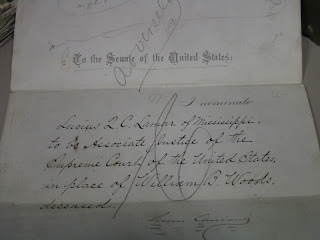 adversely
To the Senate of the United States:
I nominate
Lucius Q. C. Lamar of Mississippi,
to be Associate Justice of the
Supreme Court of the United States,
in place of William B. Woods,
deceased.
Grover Cleveland